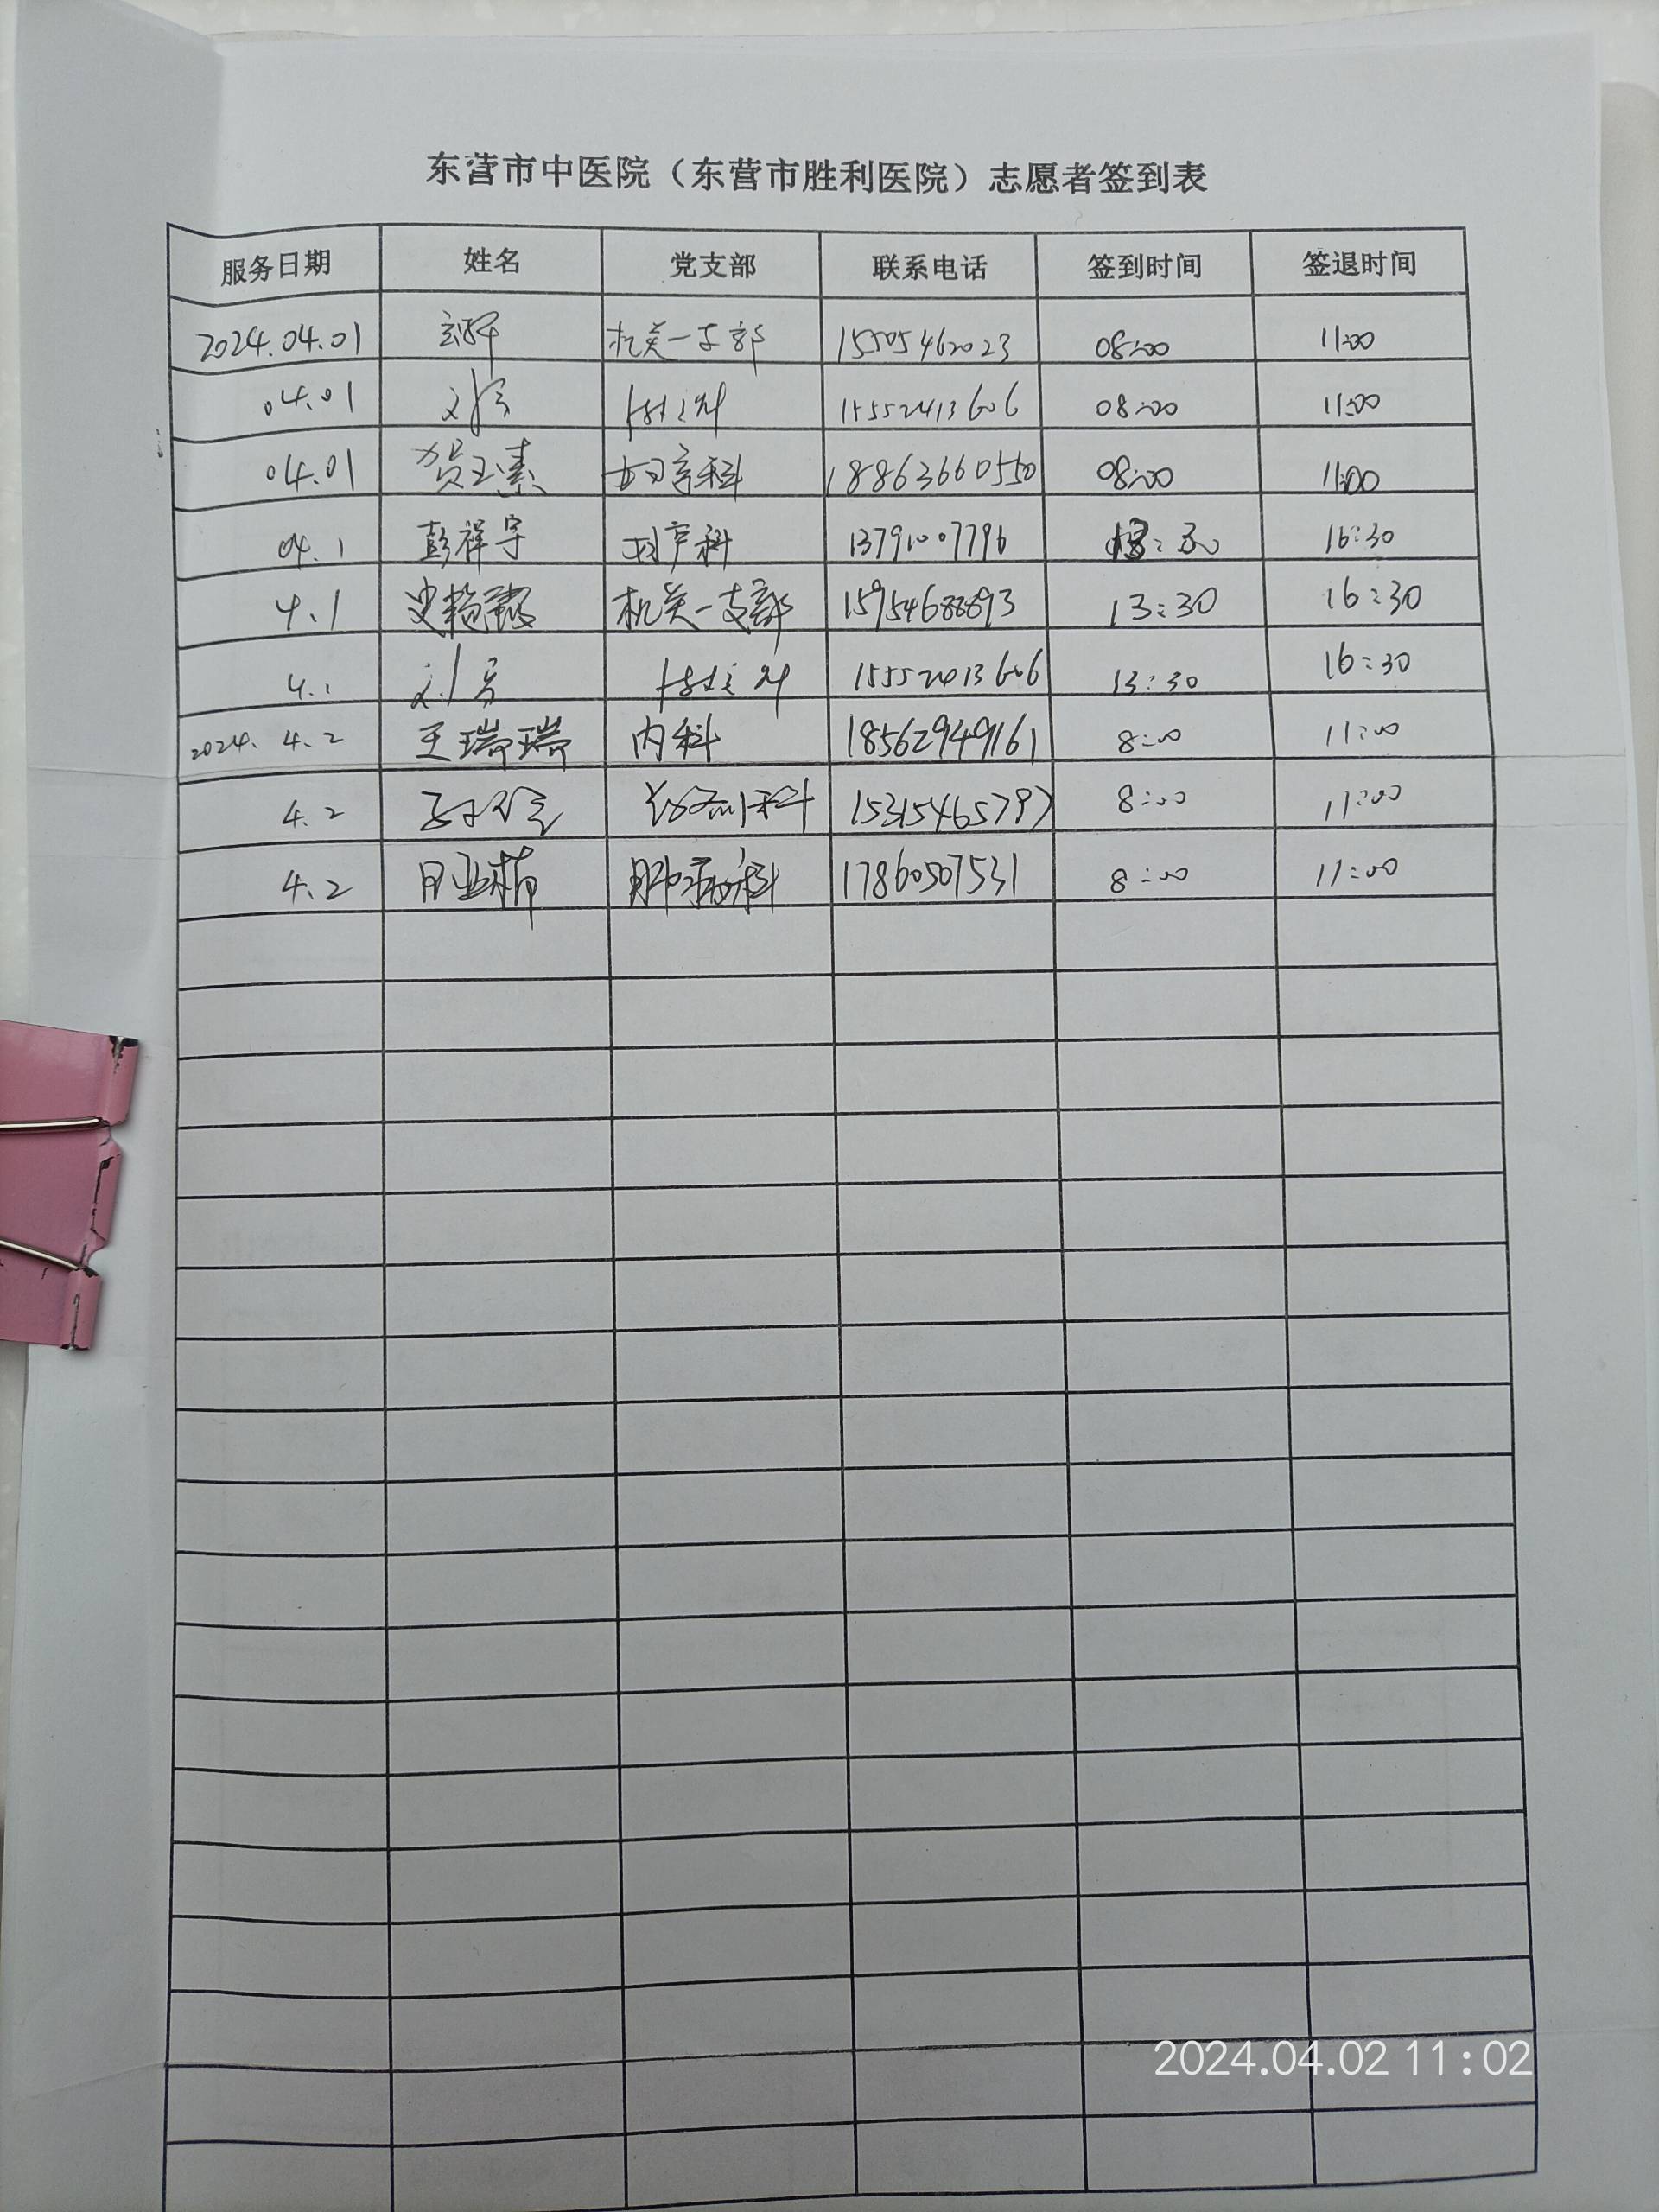 东营市中医院（东营市胜利医院）志愿者签到表
服务日期 姓名 党支部 联系电话 签到时间 签退时间
2024.04.01 机关一支部 15505462023 08:00 11:00
04.01 15552413606 08:00 11:00
04.01 贺玉素 妇产科 18863660550 08:00 11:00
04.1 彭祥宇 妇产科 13791007796 16:30
4.1 机关一支部 15954688893 13:30 16:30
4.1 15552413606 13:30 16:30
2024. 4.2 王瑞瑞 内科 18562949161 8:00 11:00
4.2 15315465797 8:00 11:00
4.2 肺病科 17860507531 8:00 11:00
2024.04.02 11:02